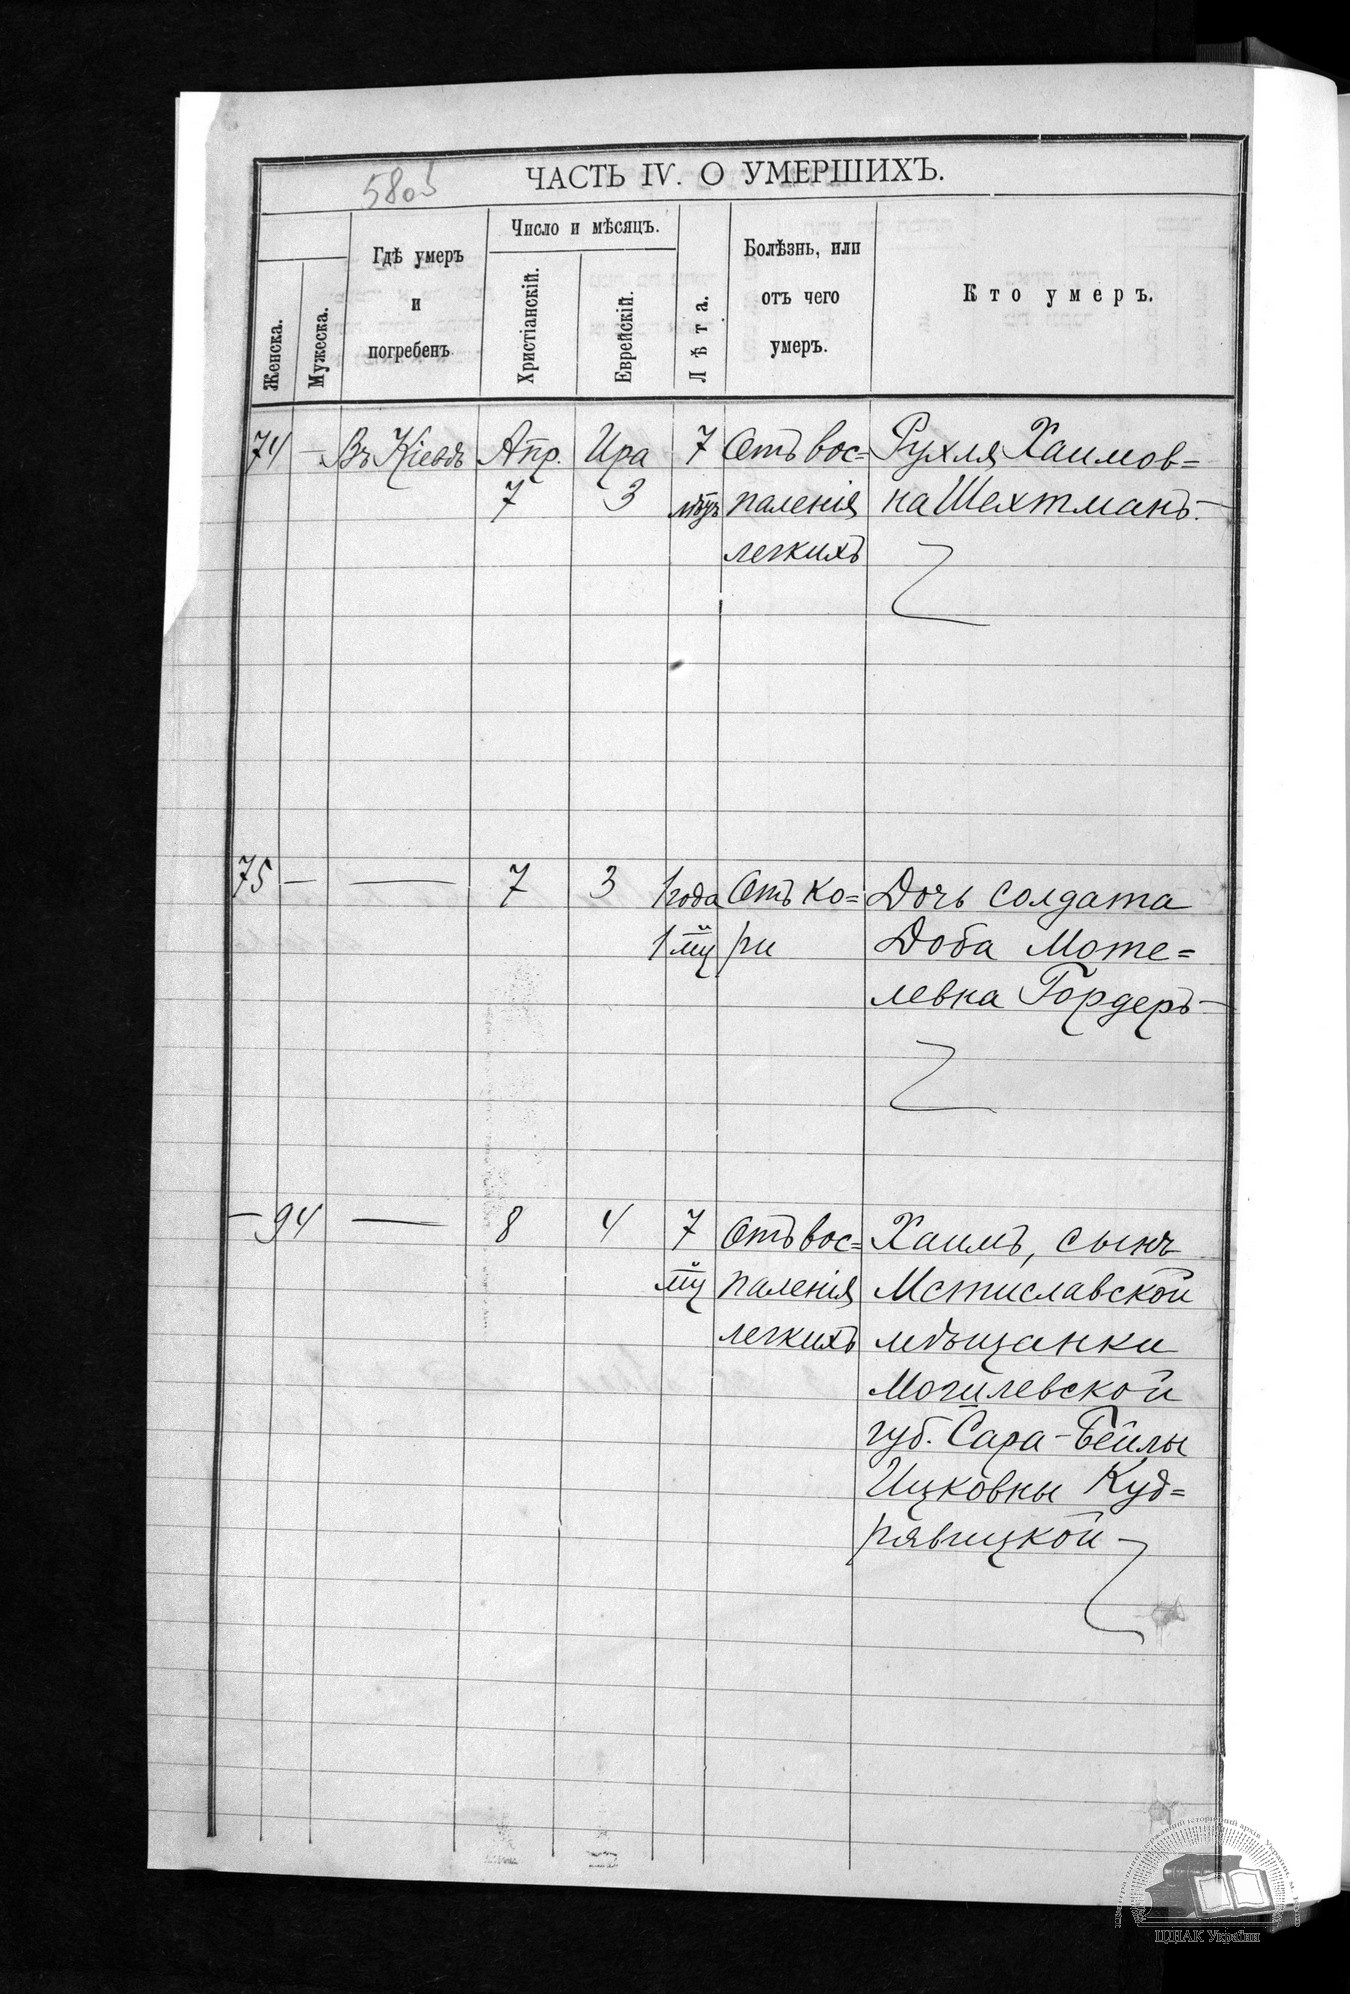 580
ЧАСТЬ IV. О УМЕРШИХЪ.
Женска.
Мужеска.
Гдѣ умеръ
и
погребенъ
Число и мѣсяцъ.
Христіанскій.
Еврейскій.
Лѣта.
Болѣзнь, или
отъ чего
умеръ.
Кто умеръ.
74 — Въ Кіевѣ Апр. Ира 7 Отъ вос= Рухля Хаимов=
7 3 паленія на Шехтманъ.—
легкихъ
75 — — 7 3 1 года Отъ ко= Дочь солдата
1 м-ц ри Доба Моте=
левна Гордеръ—
— 94 — 8 4 7 Отъ вос= Хаимъ, сынъ
м-ц паленія Мстиславской
легкихъ мѣщанки
Могилевской
губ. Сара-Бейлы
Ицковны Куд=
рявицкой—
ЦДІАК України